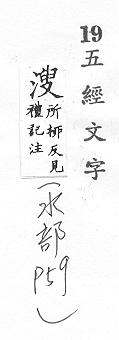 19五經文字
溲 所柳反見
禮記注
(水部
P59)